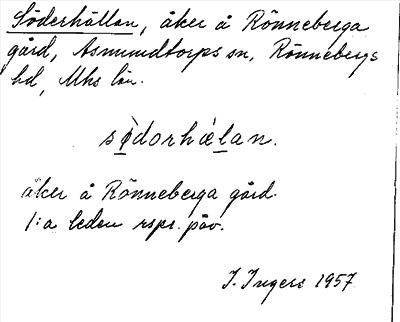 Söderhällan, åker å Rönneberga
gård, Asmundtorps sn, Rönnebergs
hd, Mhs län.
sø̀dorhælan.
åker å Rönneberga gård.
1:a leden rspr. påv.
I. Ingers 1957